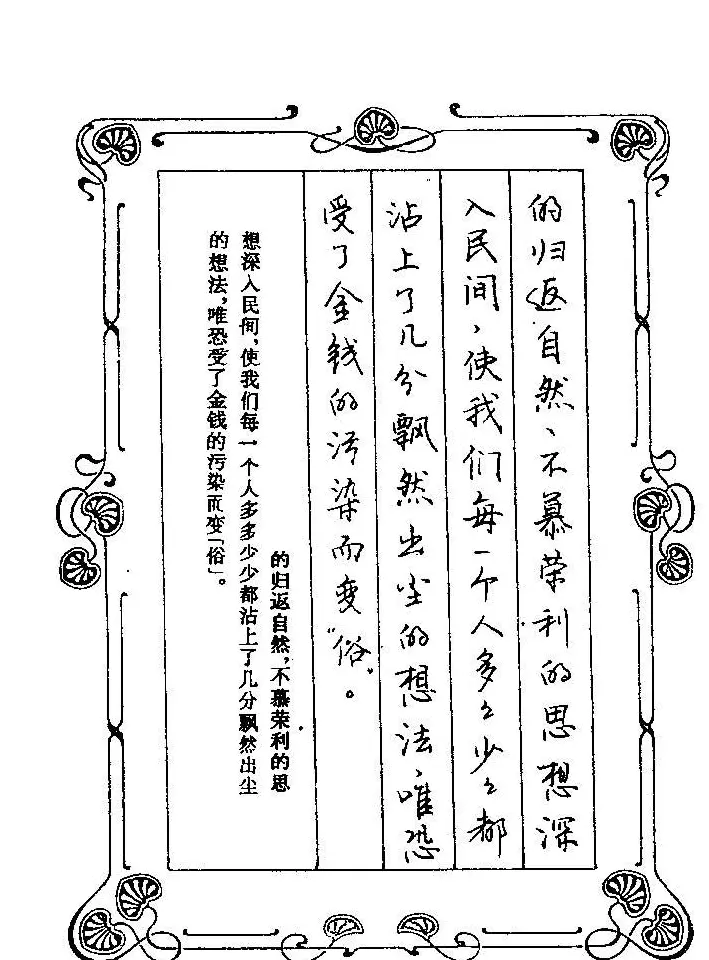 的归返自然、不慕荣利的思想深
入民间，使我们每一个人多々少々都
沾上了几分飘然出尘的想法，唯恐
受了金钱的污染而变“俗”。
的归返自然，不慕荣利的思
想深入民间，使我们每一个人多多少少都沾上了几分飘然出尘
的想法，唯恐受了金钱的污染而变「俗」。